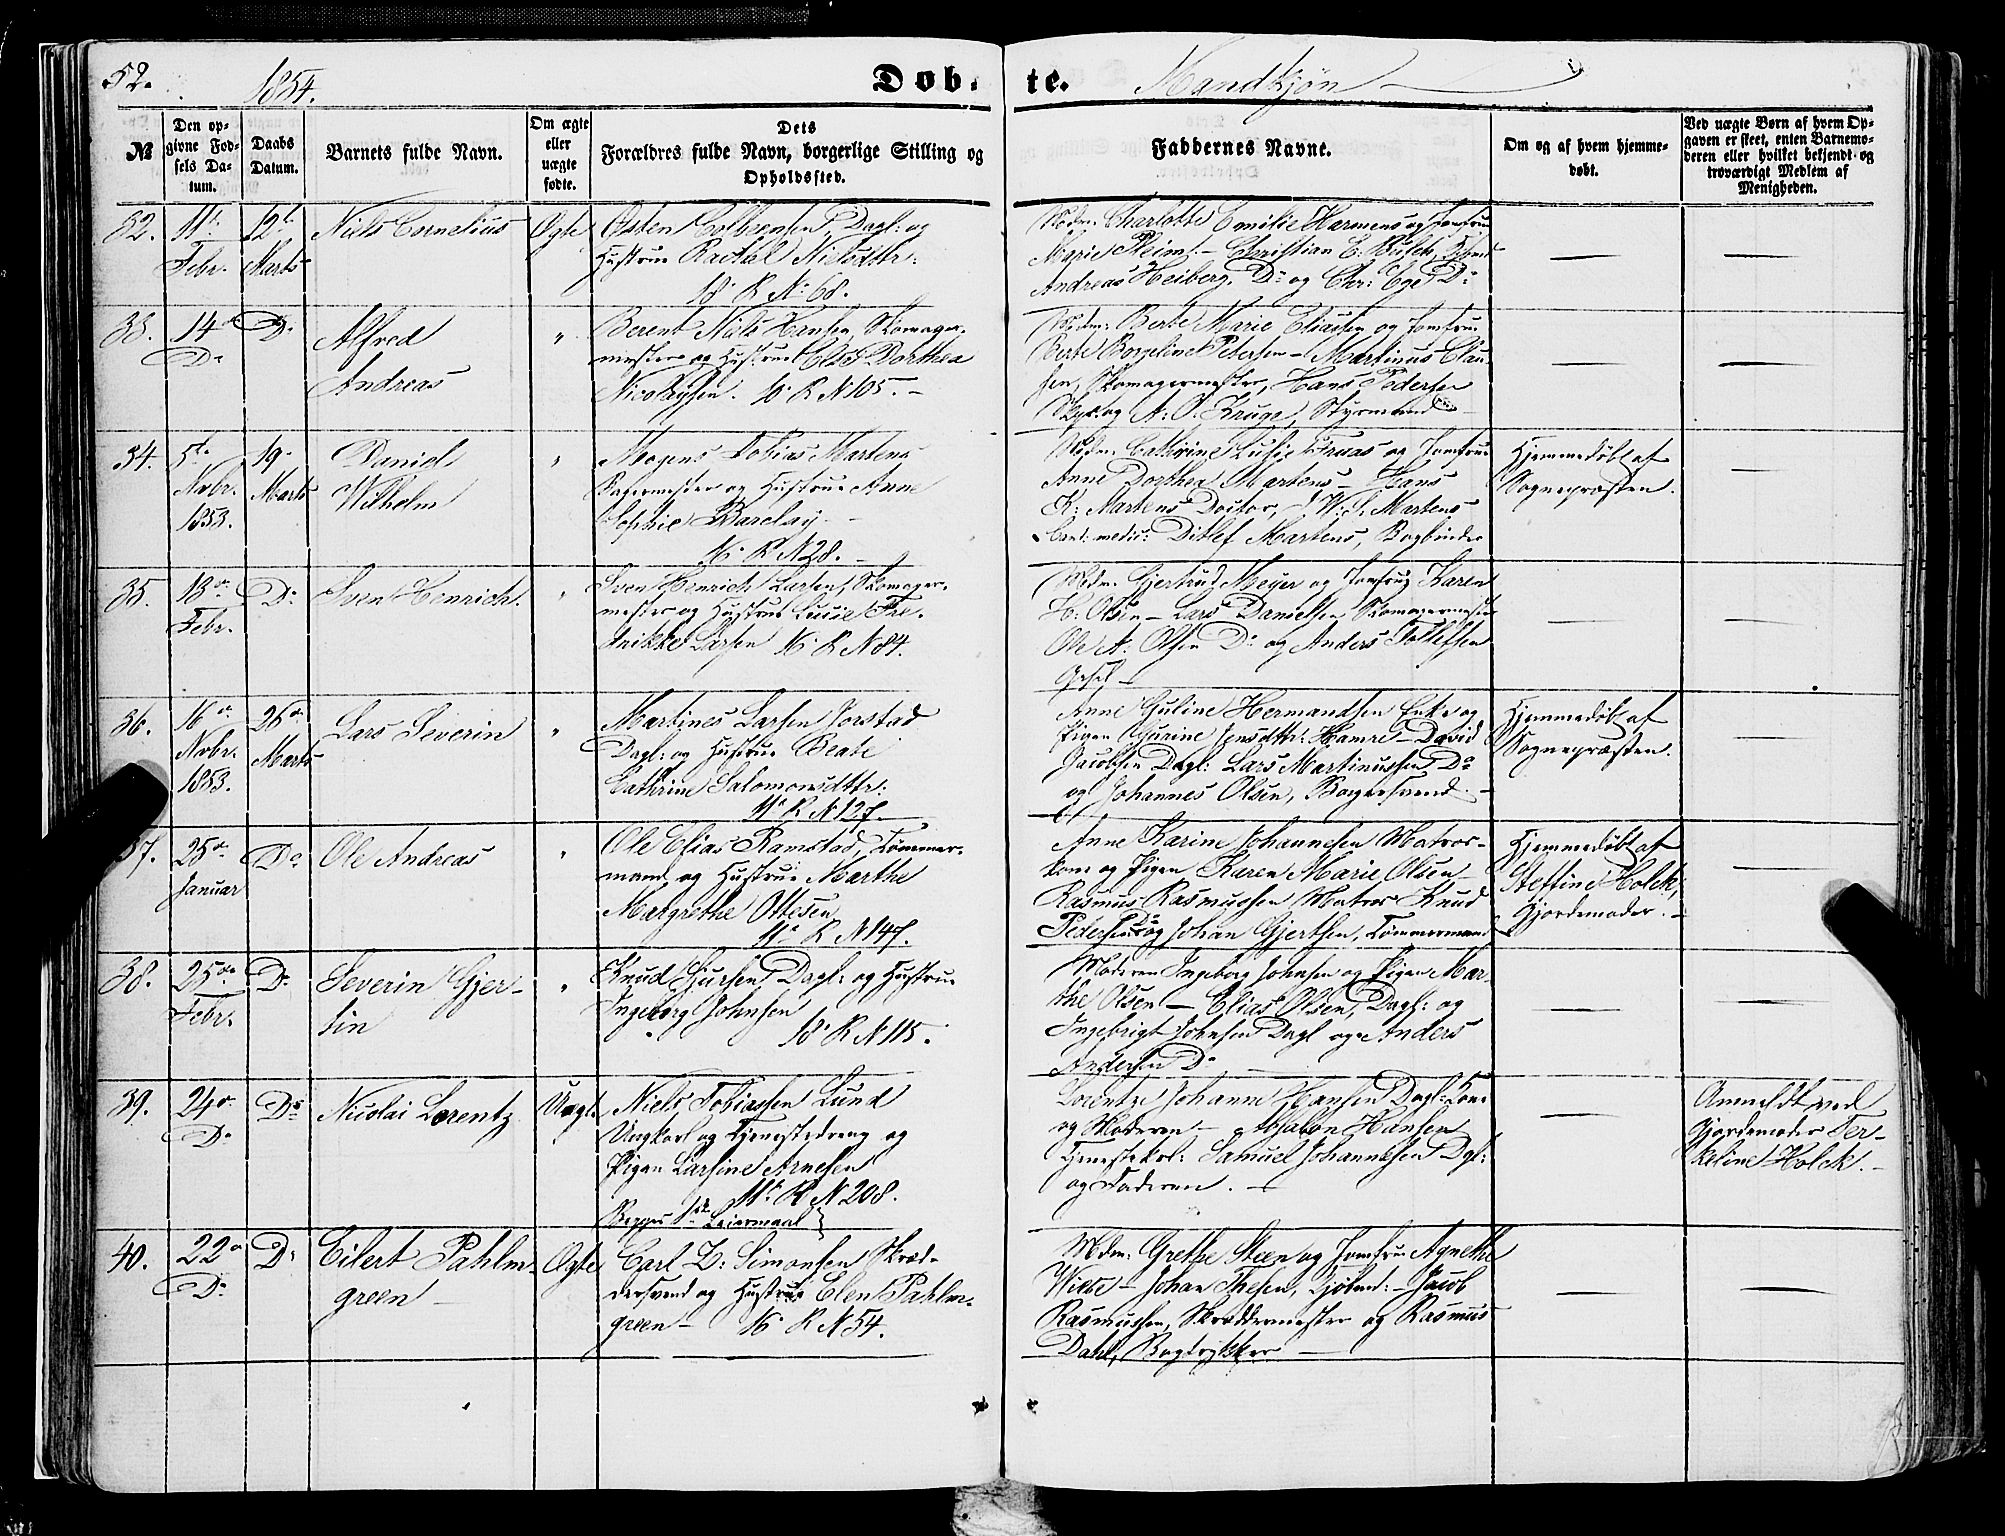 52.
1854.
Døb-
te.
Mandkjøn
№
Den op-
givne Fød-
sels Da-
tum.
Daabs
Datum.
Barnets fulde Navn.
Om ægte
eller
uægte
fødte.
Dets
Forældres fulde Navn, borgerlige Stilling og
Opholdssted.
Faddernes Navne.
Om og af hvem hjemme-
døbt.
Ved uægte Børn af hvem Op-
gaven er skeet, enten Barnemo-
deren eller hvilket bekjendt og
troværdigt Medlem af
Menigheden.
32.
11te
Febr.
12te
Marts
Niels Cornelius
Ægte
Østen Colbeensen, Dagl: og
Hustrue Rachel Nielsdttr:
18 R N 68.
Mdm. Charlotte Emilie Harmens og Jomfrue
Marie Pleim – Christian E. Busch,
Andreas Heiberg, Do og Chr: Ege Do
33.
14
Do
Do
Alfred
Andreas
"
Berent Niels Hansen, Skomager-
mester og Hustrue Else Dorthea
Nicolaysen. 10 R N 105. –
Mdm: Berte Marie Eliassen og Jomfrue
Berte Bolline Petersen – Martinus Clau-
sen, Skomagermester, Hans Pedersen
Skp: og A. O. Kruge, Styrmand
34.
5te
Novbr.
1853.
19
Marts
Daniel
Wilhelm
"
Mogens Tobias Martens
Bagermester og Hustrue Anne
Sophie Barclay –
16 R N 28. –
Mdm. Cathrine Lucie Fraas og Jomfrue
Anne Dorthea Martens – Hans
K: Martens Doctor, J. W. S. Martens
Cand: medic: Ditlef Martens, Bogbinder
Hjemmedøbt af
Sognepræsten.
35.
13de
Febr.
Do
Sven Henrich.
"
Sven Henrich Larsen, Skomager-
mester og Hustrue Lucie Fre-
drikke Larsen 16 R N 84.
Mdm. Gjertrud Meyer og Jomfrue Karen
H: Olsen – Lars Danielsen Skomagermester
Ole A: Olsen Do og Anders Tollefsen
Gesel –
36.
16de
Novbr.
1853.
26de
Marts
Lars Severin
"
Martines Larsen Jorstad
Dagl: og Hustrue Beate
Cathrine Salomonsdttr:
11 R N 127.
Anne Guline Hermandsen Enke og
Pigen Gurine Jensdttr: Hamre – David
Jacobsen Dagl: Lars Martinussen Do
og Johannes Olsen, Bagersvend. –
Hjemmedøbt af
Sognepræsten.
37.
25de
Januar
Do
Ole Andreas
"
Ole Elias Ramstad, Tømmer-
mand og Hustrue Marthe
Margrethe Ottesen
11 R N 147.
Anne Karine Johannesen Matros-
kone og Pigen Karen Marie Olsen –
Rasmus Rasmussen Matros Knud
Pedersen Do og Johan Gjertsen, Tømmermand
Hjemmedøbt af
Steffine Holck,
Gjordemoder. –
38.
25de
Febr.
Do
Severin Gjer-
tin
"
Knud Sjursen, Dagl: og Hustrue
Ingeborg Johnsen
18 R N 115.
Moderen Ingeborg Johnsen og Pigen Mar-
the Olsen – Elias Olsen, Dagl: og
Ingebrigt Johnsen Dagl og Anders
Andersen Do
39.
24de
Do
Do
Nicolai Lorentz
Uægte
Niels Tobiassen Lund
Ungkarl og Tjenestedreng og
Pigen Larsine Arnesen
11 R N 208.
Begges 1ste Leiermaal
Lorentze Johanne Hansen Dagl: Kone
og Moderen – Absalon Hansen
Tjenestekrl: Samuel Johannesen Dgl:
og Faderen. –
Anmeldt ved
Gjordemoder Ter-
keline Holck. –
40.
22de
Do
Do
Eilert Pahlm-
green –
Ægte
Carl L: Simonsen Skræd-
dersvend og Hustrue Elen Pahlm-
green – 16 R N 54.
Mdm: Grethe Steen og Jomfrue Agnethe
Wiese – Johan Thesen, Kjøbmd: – Jacob
Rasmussen, Skræddermester og Rasmus
Dahl, Bogtrykker –